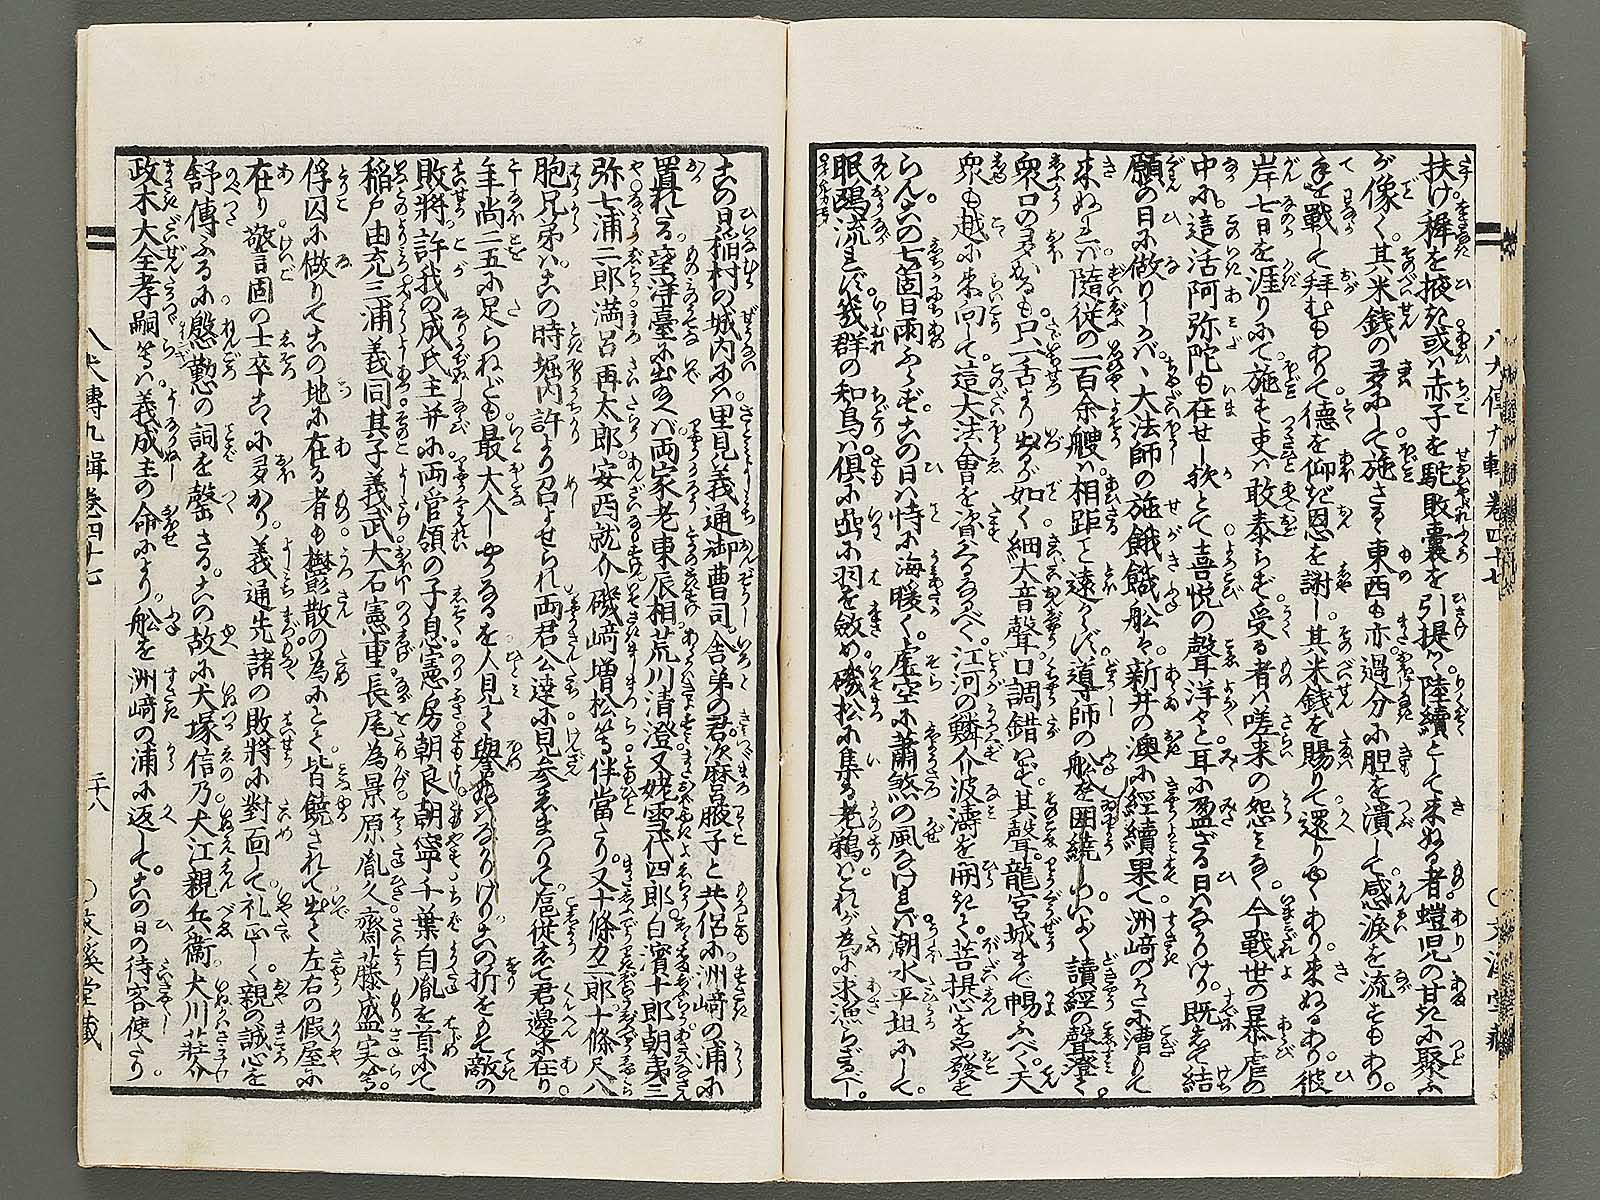 扶け稗を掖き或ハ赤子を駝敗嚢を引提げ陸續として来ぬる者螘児の甘きに聚ふ
が像く其米銭の多にして施さるゝ東西も亦過分に胆を潰して感涙を流すもあり
手を戦して拝むもありて徳を仰ぎ恩を謝し其米銭を賜りて還り去くあり来ぬるあり彼
岸七日を涯りにて施す吏ハ敢泰らず受る者ハ嗟来の怨ミなく今戦世の暴虐の
中に這活阿弥陀も在せし歟とて喜悦の聲洋々と耳に盈ざる日ハなかりけり既にして結
願の日に做りしかバ大法師の施餓鬼舩ハ新井の澳に經續果て洲﨑のかたに漕もて
来ぬれバ隨従の一百余艘ハ相距こと遠からず道導師の舩を囲繞しつゝ讀經の聲澄て
衆口の多かるも只一舌より出るが如く細大音聲口調錯ハず其聲龍宮城まで暢ふべく天
衆も越に来向して這大法會を資くるなるべく江河の鱗介波濤を開きて菩提心をや發す
らん去の七箇日雨ふらず去の日ハ恃に海暖く虚空に蕭煞の風なけれバ潮水平坦にして
眠鷗流れず幾群の知鳥ハ倶に岸に羽を斂め磯松に集る老鶴ハこれが為に求漁らざるべし
八犬傳九輯巻四十七
○文溪堂藏
去の日稲村の城内にハ里見義通御曹司舎弟の君次麿腋子と共侶に洲﨑の浦に
置れたる望洋臺に出給へバ両家老東辰相荒川清澄又姥雪代四郎白濱十郎朝夷三
弥七浦二郎満呂再太郎安西就介磯﨑増松等伴當たり又十條力二郎十條尺八
胞兄弟ハ去の時堀内許より召よせられ両君公達に見参しまゐらせて扈従として君邊に在り
年尚二五に足らねども最大人しやかなるを人見て譽ぬハなかりけり去の折をもて敵の
敗將許我の成氏主并に両管領の子息憲房朝良朝寧千葉自胤を首にて
稲戸由充三浦義同其子義武大石憲重長尾為景原胤久齋藤盛実等
俘囚に做りて去の地に在る者も鬱散の為にとて皆饒されて出て左右の假屋に
在り警固の士卒去々に多かり義通先諸の敗將に對面して礼正しく親の誠心を
舒傳ふるに慇懃の詞を罄さる去の故に犬塚信乃犬江親兵衛犬川荘介
政木大全孝嗣等ハ義成主の命により舩を洲﨑の浦に返して去の日の待客使たり
八犬傳九輯巻四十七
二十八
○文溪堂藏